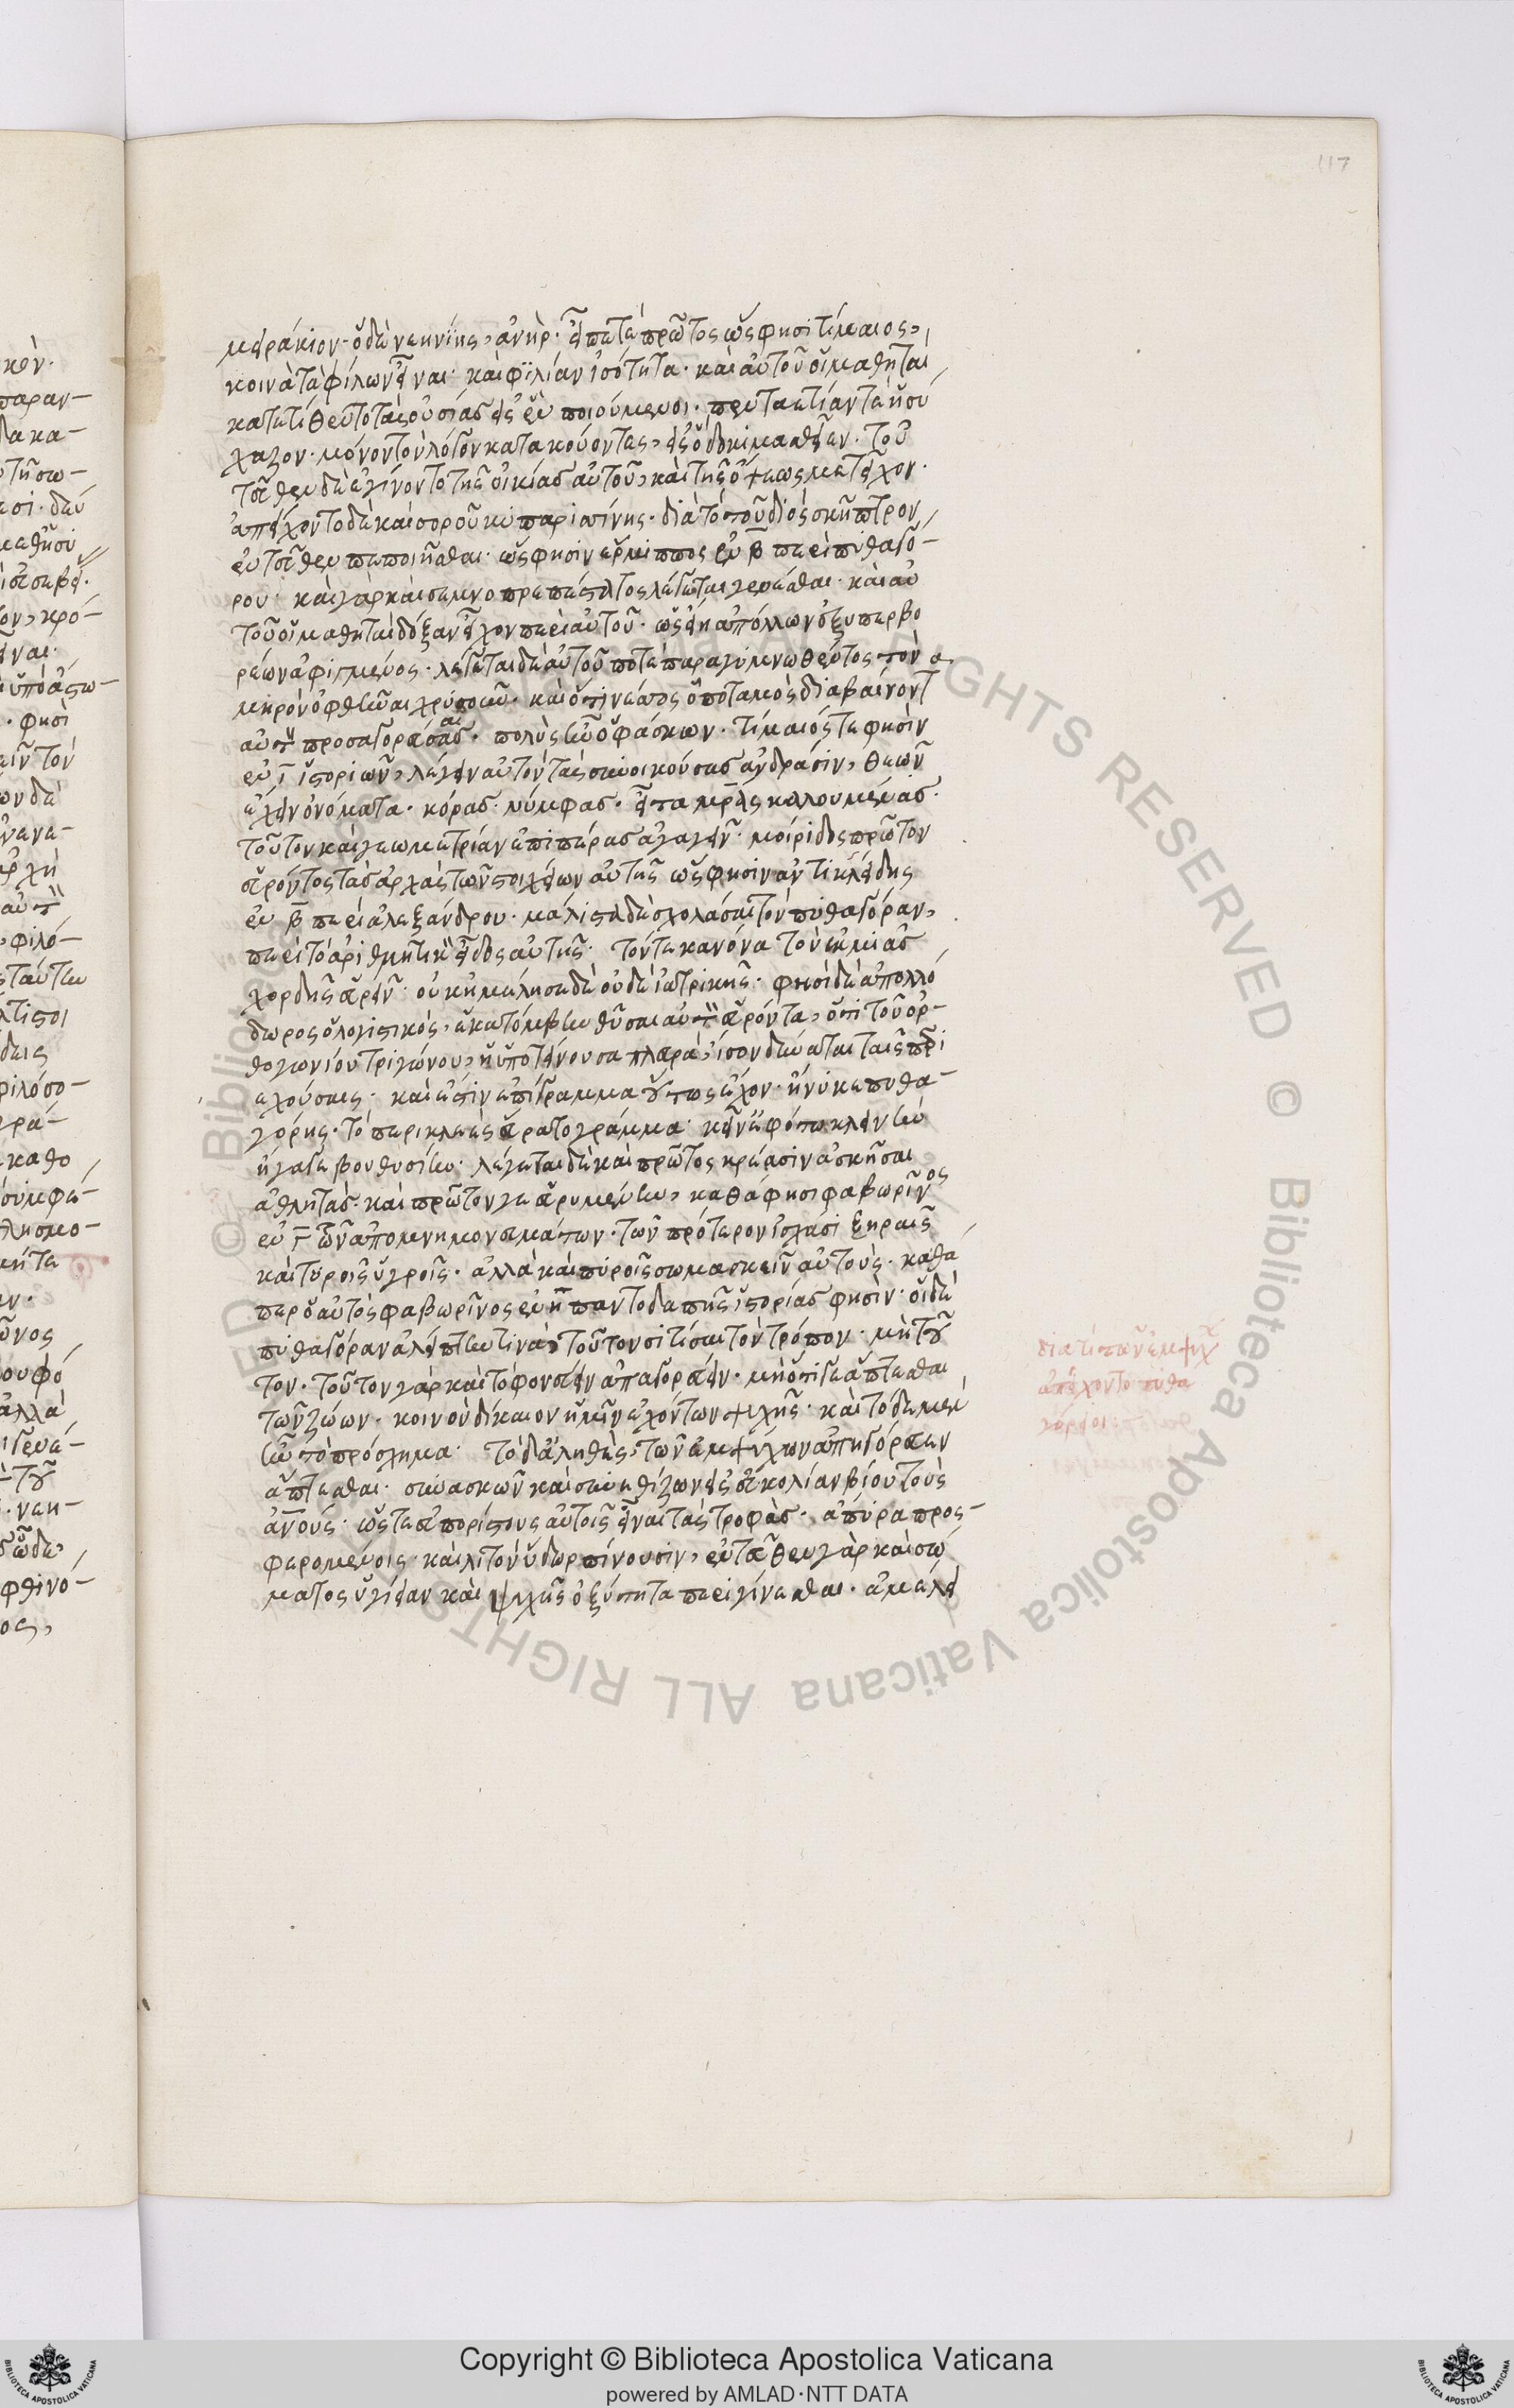 117
μειράκιον· ὁ δὲ νεηνίης, ἀνὴρ· εἶπέ τε πρῶτος ὥς φησι τίμαιος,
κοινὰ τὰ φίλων εἶναι· καὶ φιλίαν ἰσότητα· καὶ αὐτοῦ οἱ μαθηταὶ
κατετίθεντο τὰς οὐσίας εἰς ἓν ποιούμενοι· πενταετίαν τε ἡσύ
χαζον· μόνον τὸν λόγον κατακούοντες, εἰς ὃ δοκιμασθεῖεν· τοὐ
τεῦθεν δὲ ἐγίνοντο τῆς οἰκίας αὐτοῦ, καὶ τῆς ὄψεως μετεῖχον·
ἀπείχοντο δὲ καὶ σοροῦ κυπαρισίνης· διὰ τὸ τοῦ διὸς σκῆπτρον
ἐντεῦθεν πεποιῆσθαι· ὥς φησιν ἕρμιππος ἐν β περὶ πυθαγό-
ρου· καὶ γὰρ καὶ σεμνοπρεπέστατος λέγεται γενέσθαι· καὶ αὐ
τοῦ οἱ μαθηταὶ δόξαν εἶχον περὶ αὐτοῦ· ὡς εἴη ἀπόλλων ἐξ ὑπερβο
ρέων ἀφιγμένος· λέγεται δὲ αὐτοῦ ποτὲ παραγυμνωθέντος τὸν
μηρὸν ὀφθῆναι χρύσεον· καὶ ὅτι νέσσος ὁ ποταμὸς διαβαίνοντ
αὐτὸν προσαγορεύσαι· πολὺς ἦν ὁ φάσκων· τίμαιός τε φησὶν
ἐν ι ἱστοριῶν, λέγειν αὐτὸν τὰς συνοικούσας ἀνδράσιν, θεῶν
ἔχειν ὀνόματα· κόρας· νύμφας· εἶτα μρας καλουμένας·
τοῦτον καὶ γεωμετρίαν ἐπὶ πέρας ἀγαγεῖν· μοίριδος πρῶτον
εὑρόντος τὰς ἀρχὰς τῶν στοιχείων αὐτῆς ὥς φησιν ἀντικλείδης
ἐν β περὶ ἀλεξάνδρου· μάλιστα δὲ σχολάσαι τὸν πυθαγόραν,
περὶ τὸ ἀριθμητικὸν εἶδος αὐτῆς· τόν τε κανόνα τὸν ἐκ μιᾶς
χορδῆς εὑρεῖν· οὐκ ἠμέλησε δὲ οὐδὲ ἰατρικῆς· φησὶ δὲ ἀπολλό
δωρος ὁ λογιστικὸς, ἑκατόμβην θῦσαι αὐτὸν εὑρόντα, ὅτι τοῦ ὀρ-
θογωνίου τριγώνου, ἡ ὑποτείνουσα πλευρὰ, ἴσον δύναται ταῖς περι
εχούσαις· καὶ ἔστιν ἐπίγραμμα οὕτως ἔχον· ἡνύκε πυθα-
γόρης· τὸ περικλεὲς εὕρατο γράμμα· κεῖν ἐφ' ὅτω κλεινὴν
ἤγαγε βουθυσίην· λέγεται δὲ καὶ πρῶτος κρέασιν ἀσκῆσαι
ἀθλητάς· καὶ πρῶτόν γε εὐρυμένην, καθά φησι φαβωρῖνος
ἐν γ τῶν ἀπομνημονευμάτων· τῶν πρότερον ἰσχάσι ξηραῖς
καὶ τυροῖς ὑγροῖς· ἀλλὰ καὶ πυροῖς σωμασκεῖν αὐτούς· καθά
περ ὁ αὐτὸς φαβωρῖνος ἐν η παντοδαπῆς ἱστορίας φησίν· οἱ δὲ
πυθαγόραν ἀλείπτην τινὰ, τοῦτον σιτίσαι τὸν τρόπον· μὴ τοῦ
τον· τοῦτον γὰρ καὶ τὸ φονεύειν ἀπαγορεύειν· μὴ ὅτι γε ἅπτεσθαι
τῶν ζώων· κοινοὺ δίκαιον ἡμῖν ἐχόντων ψυχῆς· καὶ τόδε μὲν
ἦν τὸ πρόσχημα· τὸ δ' ἀληθὲς, τῶν ἐμψύχων ἀπηγόρευεν
ἅπτεσθαι· συνασκῶν καὶ συνεθίζων εἰς εὐκολίαν βίου τοὺς
ἀνους· ὥστε εὐπορίστους αὐτοῖς εἶναι τὰς τροφάς· ἄπυρα προς-
φερομένοις· καὶ λιτὸν ὕδωρ πίνουσιν, ἐντεῦθεν γὰρ καὶ σώ
ματος ὑγίειαν καὶ ψυχῆς ὀξύτητα περιγίνεσθαι· ἀμέλει
διατί τῶν ἐμψύχ
ἀπείχοντο πυθα